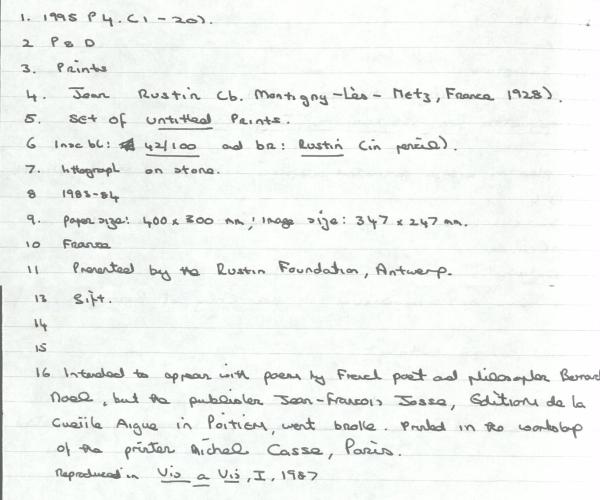 1. 1995 P4. (1 - 20).
2 P & D
3. Prints
4. Jean Rustin (b. Montigny-Lès-Metz, France 1928).
5. Set of untitled Prints.
6 Insc bl: 42/100 ad br: Rustin (in pencil).
7. lithograph on stone.
8 1983-84
9. paper size: 400 x 300 mm; image size: 347 x 247 mm.
10 France
11 Presented by the Rustin Foundation, Antwerp.
13 Gift.
14
15
16 Intended to appear with poems by French poet ad philosopher Bernard
Noel, but the publisher Jean-Francois Josse, Editions de la
Cueille Aigue in Poitiers, went broke. Printed in the workshop
of the printer Michel Casse, Paris.
Reproduced in Vis a Vis, I, 1987